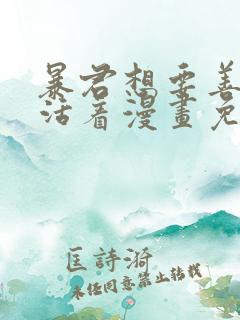 暴君想要善
活着漫畫免
匡詩漪
未经同意禁止转载